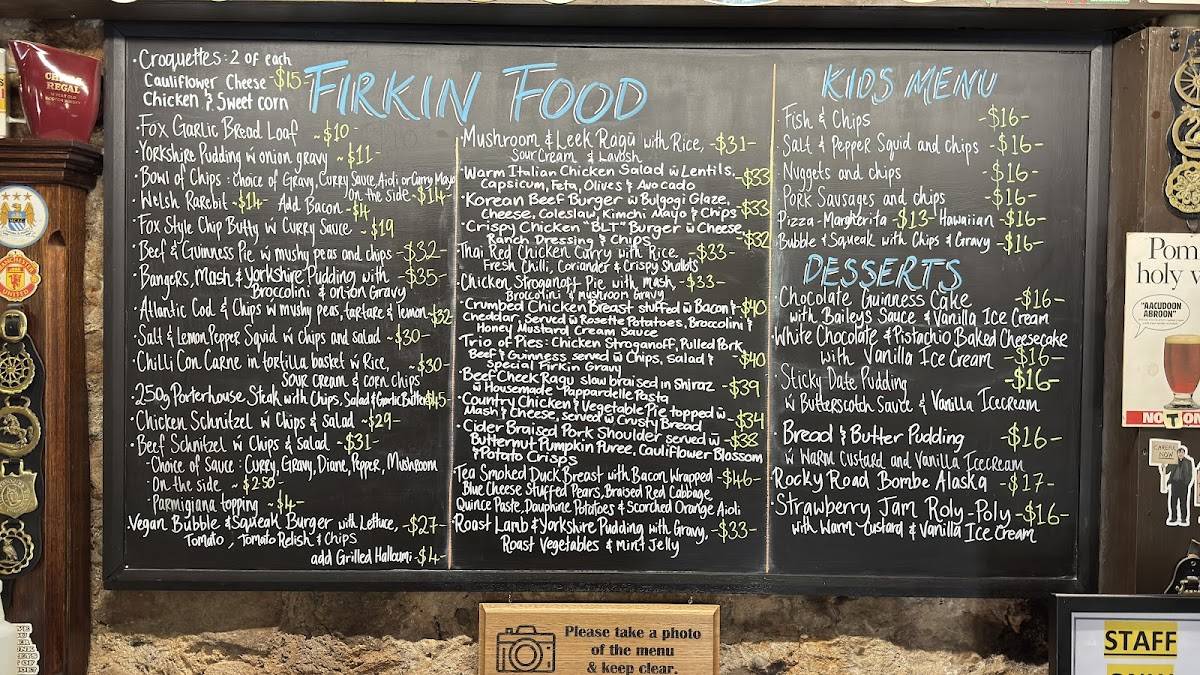 FIRKIN FOOD
·Croquettes: 2 of each
Cauliflower Cheese $15-
Chicken & Sweet corn
·Fox Garlic Bread Loaf ~$10-
·Yorkshire Pudding w̄ onion gravy ~$11-
·Bowl of Chips: choice of Gravy, Curry Sauce, Aioli or Curry Mayo
On the side ~$14-
·Welsh Rarebit ~$14- Add Bacon-$4
·Fox Style Chip Butty w̄ Curry Sauce ~$19
·Beef & Guinness Pie w̄ mushy peas and chips -$32-
·Bangers, Mash & Yorkshire Pudding with -$35-
Broccolini & onion Gravy
·Atlantic Cod & Chips w̄ mushy peas, tartare & lemon-$32
·Salt & Lemon Pepper Squid w̄ Chips and salad ~$30-
·Chilli Con Carne in tortilla basket w̄ Rice, -$30-
Sour cream & corn chips
·250g Porterhouse Steak with Chips, Salad & Garlic Butter $45-
·Chicken Schnitzel w̄ Chips & salad ~$29-
·Beef Schnitzel w̄ Chips & Salad -$31-
·Choice of Sauce: Curry, Gravy, Diane, Pepper, Mushroom
On the side ~$2.50-
·Parmigiana topping ~$4-
Vegan Bubble & Squeak Burger with Lettuce, -$27-
Tomato, Tomato Relish & Chips
add Grilled Halloumi-$4-
·Mushroom & Leek Ragu with Rice, -$31-
Sour Cream & Lavosh
·Warm Italian Chicken Salad w̄ Lentils, -$33
Capsicum, Feta, Olives & Avocado
·Korean Beef Burger w̄ Bulgogi Glaze,
Cheese, Coleslaw, Kimchi Mayo & Chips $33
·Crispy Chicken "BLT" Burger w̄ Cheese
Ranch Dressing & Chips -$32
Thai Red Chicken Curry with Rice -$33-
Fresh Chilli, Coriander & Crispy Shallots
Chicken Stroganoff Pie with Mash, -$33-
Broccolini & mushroom Gravy
·Crumbed Chicken Breast stuffed w̄ Bacon & -$40
Cheddar, Served w̄ Rosette Potatoes, Broccolini &
Honey Mustard Cream Sauce
Trio of Pies: Chicken Stroganoff, Pulled Pork,
Beef & Guinness served w̄ Chips, Salad & $40
Special Firkin Gravy
·Beef Cheek Ragu slow braised in Shiraz -$39
w̄ Housemade Pappardelle Pasta
·Country Chicken & Vegetable Pie topped w̄ -$34
Mash & Cheese, served w̄ Crusty Bread
·Cider Braised Pork Shoulder served w̄ -$38
Butternut Pumpkin Puree, Cauliflower Blossom
& Potato Crisps
Tea Smoked Duck Breast with Bacon Wrapped -$46-
Blue Cheese Stuffed Pears, Braised Red Cabbage
Quince Paste, Dauphine Potatoes & Scorched Orange Aioli
·Roast Lamb & Yorkshire Pudding with Gravy, -$33-
Roast Vegetables & Mint Jelly
KIDS MENU
·Fish & Chips -$16-
·Salt & Pepper Squid and chips -$16-
Nuggets and chips $16-
·Pork Sausages and chips $16-
Pizza-Margherita -$13- Hawaiian -$16-
Bubble & Squeak with Chips & Gravy -$16-
DESSERTS
·Chocolate Guinness Cake -$16-
with Baileys Sauce & Vanilla Ice Cream
White Chocolate & Pistachio Baked Cheesecake
with Vanilla Ice Cream -$16-
·Sticky Date Pudding -$16-
w̄ Butterscotch Sauce & Vanilla Icecream
·Bread & Butter Pudding -$16-
w̄ Warm Custard and Vanilla Icecream
Rocky Road Bombe Alaska -$17-
·Strawberry Jam Roly-Poly -$16-
with Warm Custard & Vanilla Ice Cream
CHIVAS
REGAL
MANCHESTER
UNITED
Pom
holy w
"AACUDOON
ABROON"
NO
CAREFUL
NOW
Please take a photo
of the menu
& keep clear.
STAFF